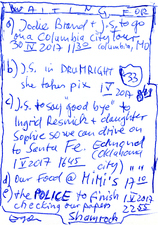 WAITING FOR
a) Jackie Brand + J.S. to go
on a Columbia City Tour
30 IV 2017 1130 Columbia, MO
b) J.S. in DRUMRIGHT
she taken pix
33
1 V 2017
c) J.S. to say good bye to
Ingrid Resnick + daughter
Sophie so we can drive on
to Santa Fe. Edmond
(Oklahoma
1 V 2017 1645 city)
d) our Food @ MiMi's 1710
e) the POLICE to finish 1 V 2017
checking our papers 2255
Shamrock